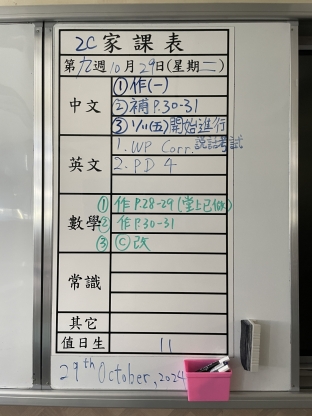 2C 家課表
第九週 10月29日(星期二)
中文
① 作(一)
② 補 P.30-31
③ 1/11(五)開始進行
說話考試
英文
1. WP Corr.
2. PD 4
數學
① 作 P.28-29(堂上已做)
② 作 P.30-31
③ Ⓒ 改
常識
其它
值日生 11
29th October, 2024